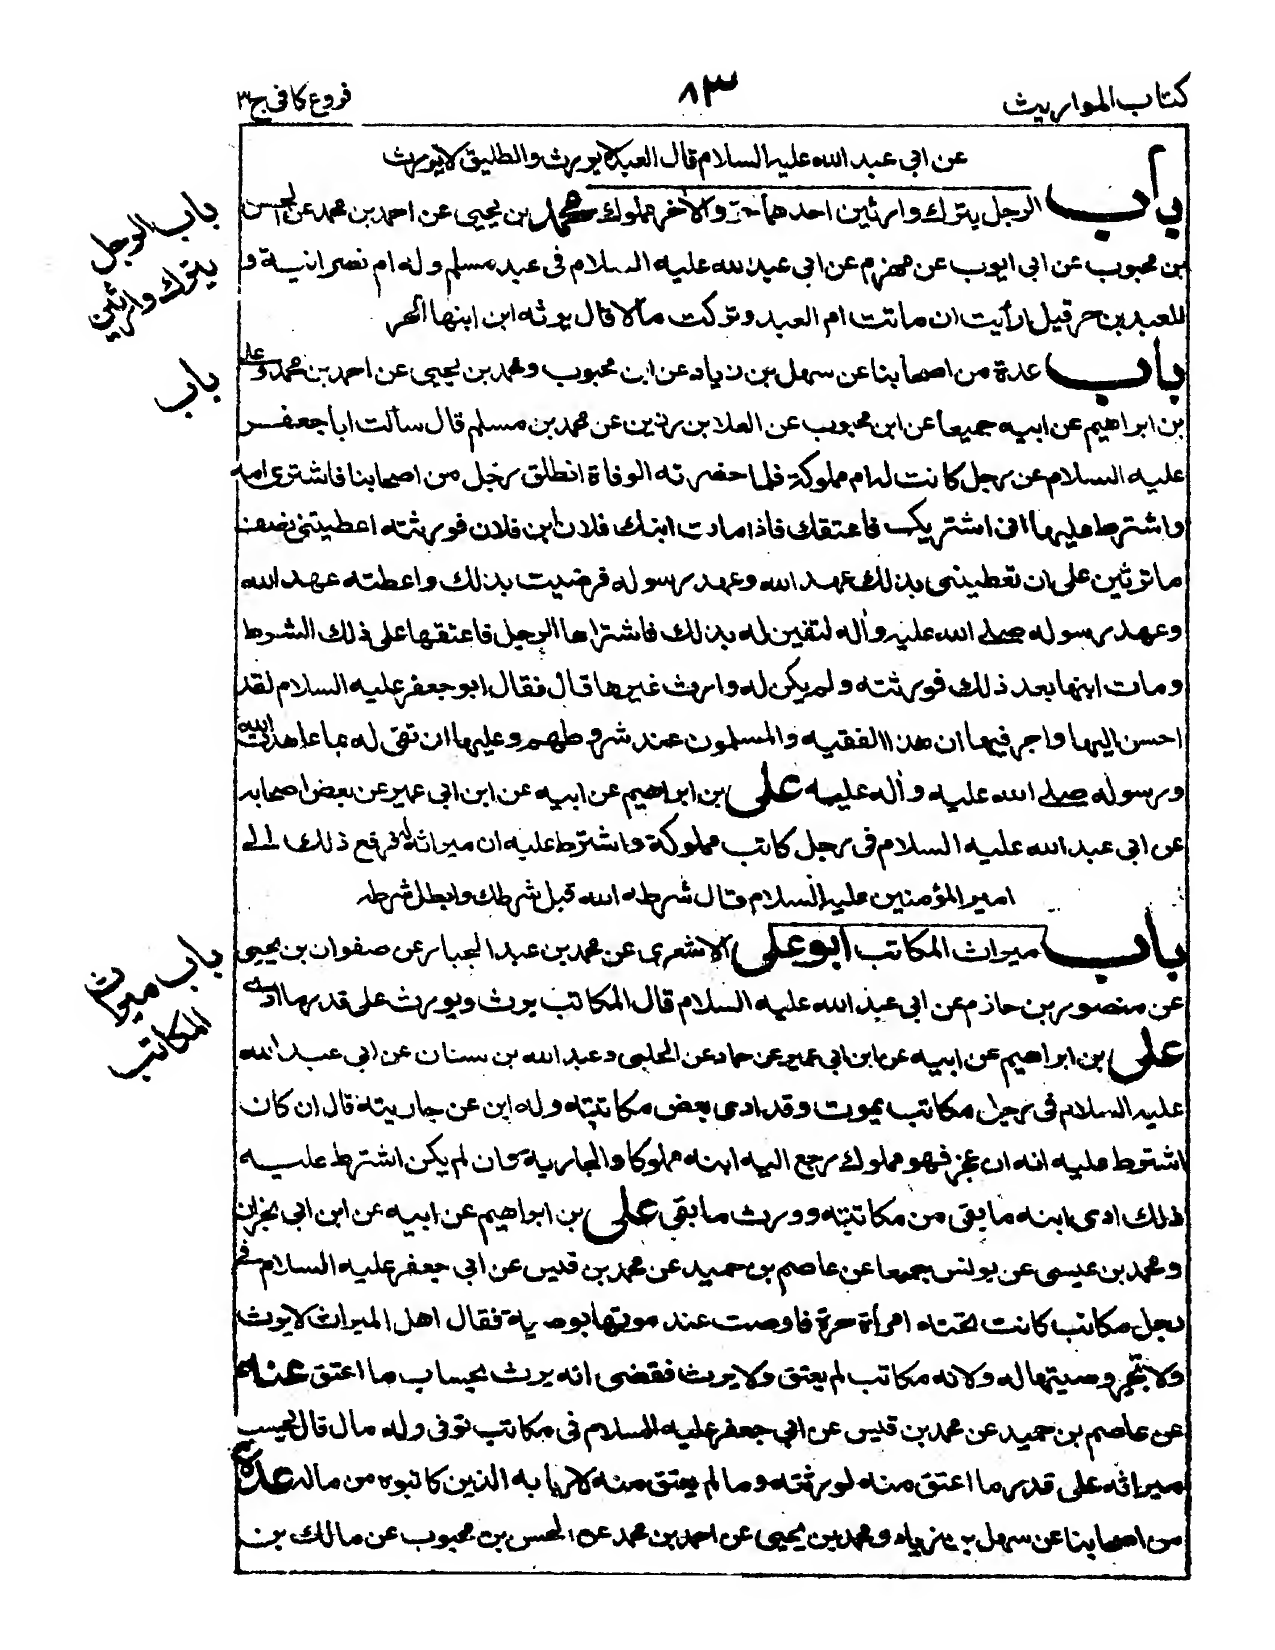 كتاب المواريث
٨٣
فروع كافى ج٣
عن ابى عبد الله عليه السلام قال العبد لا يورث والطليق لا يورث
باب الرجل يترك وارثين احدهما حر والاخر مملوك محمد بن يحيى عن احمد بن محمد عن الحسن
بن محبوب عن ابى ايوب عن مهزم عن ابى عبد الله عليه السلام فى عبد مسلم وله ام نصرانية و
للعبد بن حر قيل ارأيت ان ماتت ام العبد وتركت مالا قال يرثه ابن ابنها الحر
باب عدة من اصحابنا عن سهل بن زياد عن ابن محبوب ومحمد بن يحيى عن احمد بن محمد وعلى
بن ابراهيم عن ابيه جميعا عن ابن محبوب عن العلا بن رزين عن محمد بن مسلم قال سألت ابا جعفر
عليه السلام عن رجل كانت له ام مملوكة فلما حضرته الوفاة انطلق رجل من اصحابنا فاشترى امه
واشترط عليها انى اشتريك فاعتقك فاذا مات ابنك فلان ابن فلان فورثته اعطيتنى نصف
ما ترثين على ان تعطينى بذلك عهد الله وعهد رسوله فرضيت بذلك واعطته عهد الله
وعهد رسوله صلى الله عليه وآله لتفين له بذلك فاشتراها الرجل فاعتقها على ذلك الشرط
ومات ابنها بعد ذلك فورثته ولم يكن له وارث غيرها قال فقال ابو جعفر عليه السلام لقد
احسن اليها واجر فيها ان هذا الفقيه والمسلمون عند شروطهم وعليها ان تفى له بما عاهدت الله
ورسوله صلى الله عليه وآله عليه على بن ابراهيم عن ابيه عن ابن ابى عمير عن بعض اصحابه
عن ابى عبد الله عليه السلام فى رجل كاتب مملوكة واشترط عليه ان ميراثه له فرفع ذلك الى
امير المؤمنين عليه السلام قال شرط الله قبل شرطك وابطل شرطه
باب ميراث المكاتب ابو على الاشعرى عن محمد بن عبد الجبار عن صفوان بن يحيى
عن منصور بن حازم عن ابى عبد الله عليه السلام قال المكاتب يرث ويورث على قدر ما ادى
على بن ابراهيم عن ابيه عن ابن ابى عمير عن حماد عن الحلبى وعبد الله بن سنان عن ابى عبد الله
عليه السلام فى رجل مكاتب يموت وقد ادى بعض مكاتبته وله ابن عن جاريته قال ان كان
اشترط عليه انه ان عجز فهو مملوك رجع اليه ابنه مملوكا والجارية وان لم يكن اشترط عليه
ذلك ادى ابنه ما بقى من مكاتبته وورث ما بقى على بن ابراهيم عن ابيه عن ابن ابى نجران
ومحمد بن عيسى عن يونس جميعا عن عاصم بن حميد عن محمد بن قيس عن ابى جعفر عليه السلام فى
رجل مكاتب كانت تحته امرأة حرة فاوصت عند موتها بوصية فقال اهل الميراث لا يرث
ولا نجيز وصيتها له ولانه مكاتب لم يعتق ولا يرث فقضى انه يرث بحساب ما اعتق عنه
عن عاصم بن حميد عن محمد بن قيس عن ابى جعفر عليه السلام فى مكاتب توفى وله مال قال يحسب
ميراثه على قدر ما اعتق منه لورثته وما لم يعتق منه لاربابه الذين كاتبوه من ماله عدة
من اصحابنا عن سهل بن زياد ومحمد بن يحيى عن احمد بن محمد عن الحسن بن محبوب عن مالك بن
باب الرجل
يترك وارثين
باب
باب ميراث
المكاتب